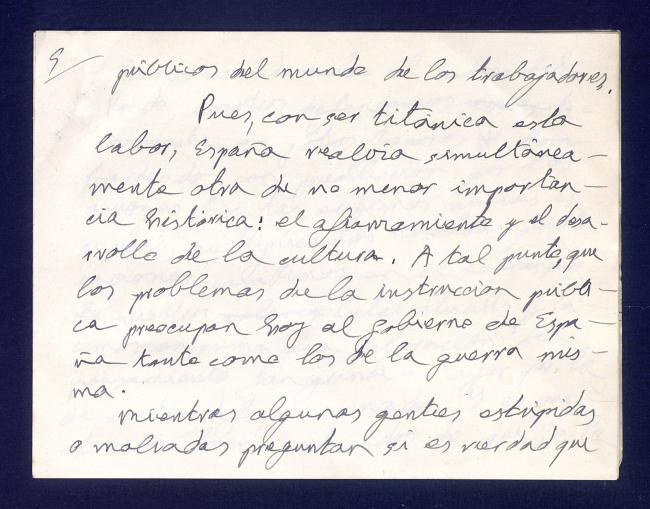 9/
públicos del mundo de los trabajadores.
Pues, con ser titánica esta
labor, España realiza simultánea-
mente otra de no menor importan-
cia histórica: el afianzamiento y el desa-
rrollo de la cultura. A tal punto, que
los problemas de la instrucción públi-
ca preocupan hoy al gobierno de Espa-
ña tanto como los de la guerra mis-
ma.
Mientras algunas gentes estúpidas
o malvadas preguntan si es verdad que